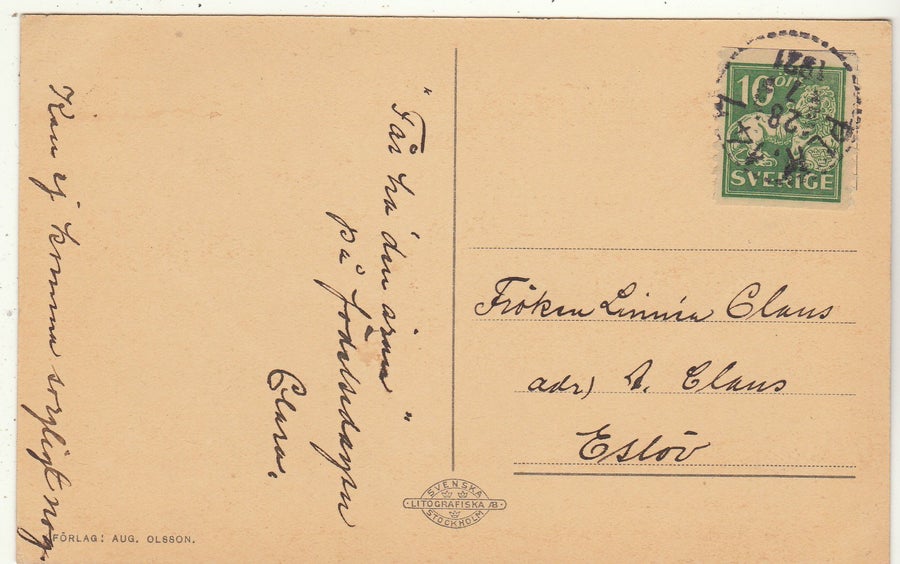 "Får ha den äran"
på födelsedagen
Clara.
Kan ej komma sorgligt nog.
FÖRLAG: AUG. OLSSON.
SVENSKA
LITOGRAFISKA AB
STOCKHOLM
10 ÖRE
SVERIGE
28
1921
Fröken Linnéa Claus
adr) A. Claus
Eslöv